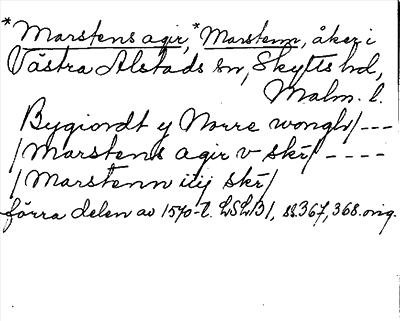 *Marstens agir, *Marstenn, åker i
Västra Alstads sn, Skytts hd,
Malm. l.
Bygiordt y Norre wongh/ ---
/Marstens agir v skr/ ----
/Marstenn iiij skr/
förra delen av 1570-t. LSLB1, ss. 367, 368. orig.